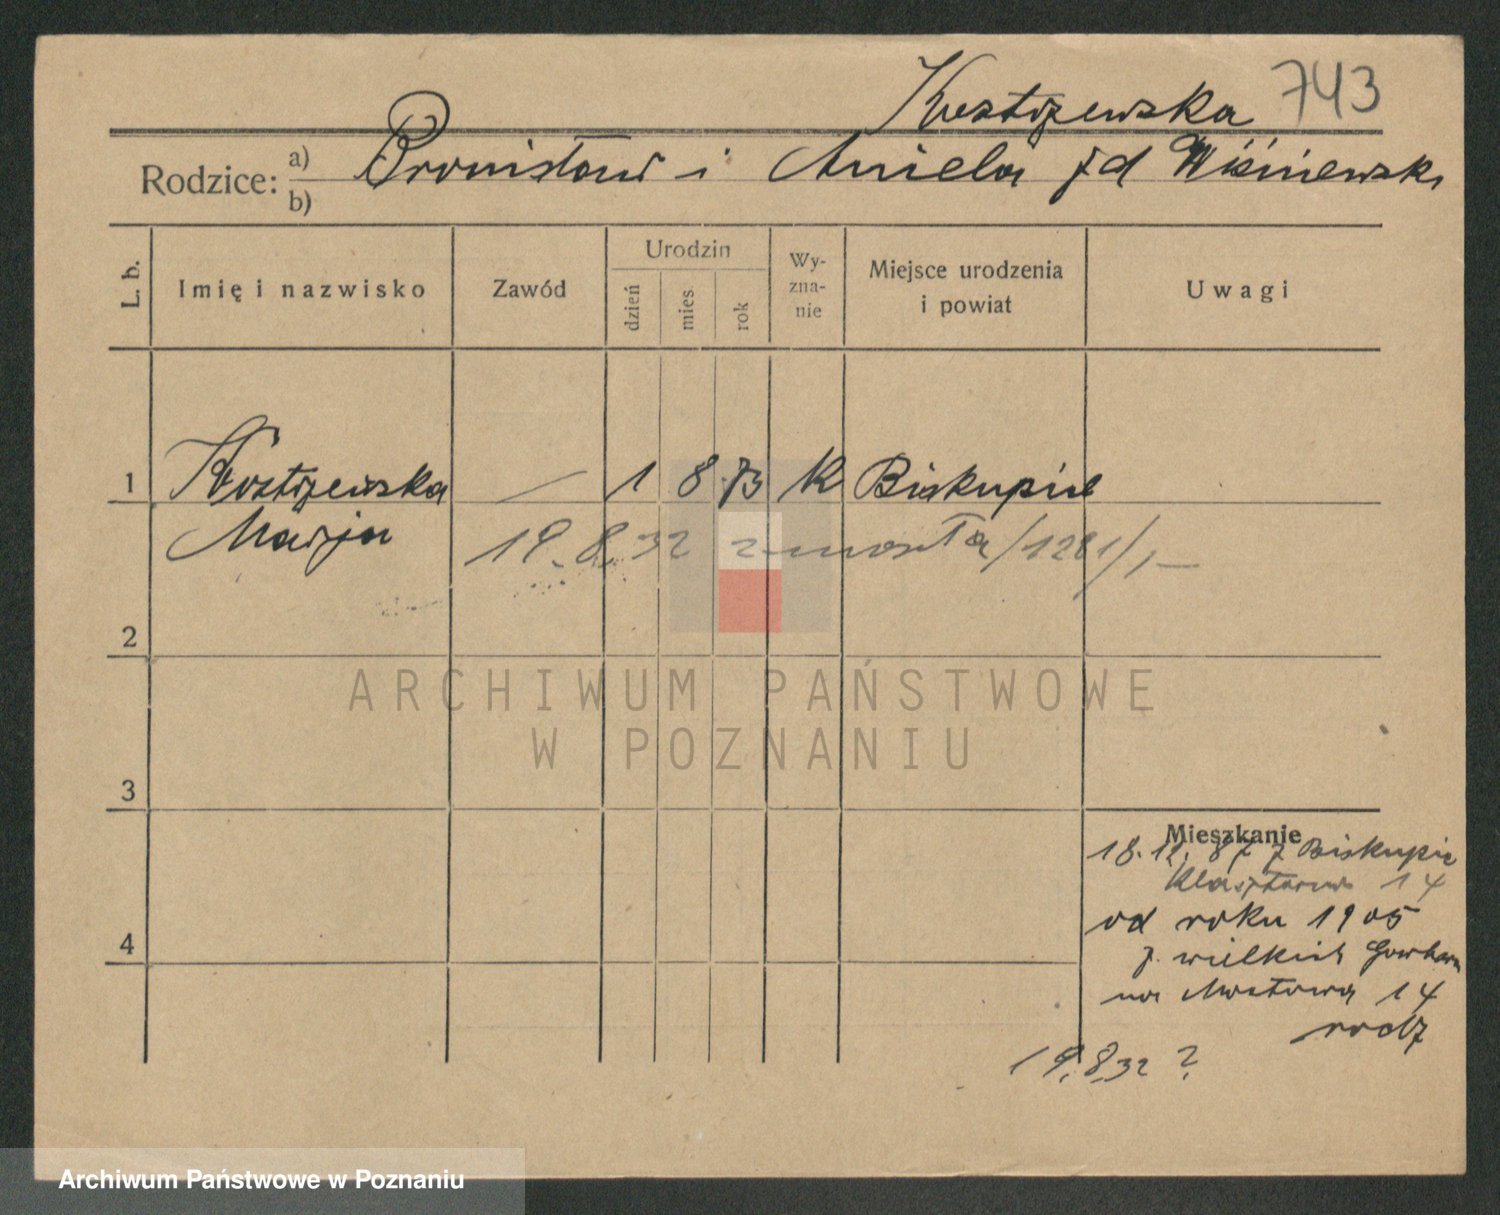 Kostrzewska 743
Rodzice: a) Bronisław i Aniela zd Wiśniewsk
b)
L. b.
Imię i nazwisko
Zawód
Urodzin
dzień
mies.
rok
Wy-
zna-
nie
Miejsce urodzenia
i powiat
Uwagi
1 Kostrzewska — 1 8 73 K Biskupice
Marja
19.8.32 zmarła /1281/,—
2
ARCHIWUM PAŃSTWOWE
W POZNANIU
3
Mieszkanie
18.12. 87 z Biskupic
14
od roku 1905
z. wielkich
na Mostowa 14
rodz
4
19.8.32 ?
Archiwum Państwowe w Poznaniu